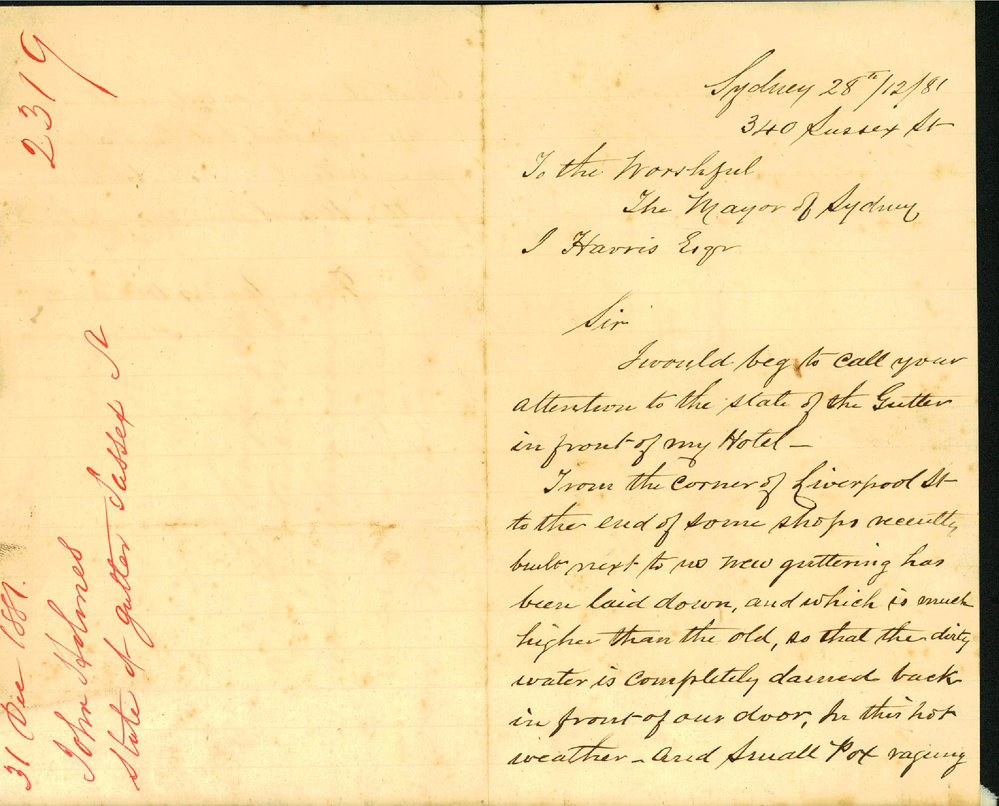 2319
31 Dec 1881.
John Holmes
State of gutter Sussex St
Sydney 28th/12/81
340 Sussex St
To the Worshful
The Mayor of Sydney
J Harris Esqr
Sir
I would beg to call your
attention to the state of the Gutter
in front of my Hotel —
From the corner of Liverpool St
to the end of some shops recently
built next to us new guttering has
been laid down, and which is much
higher than the old, so that the dirty
water is completely damed back
in front of our door, In this hot
weather - and Small Pox raging